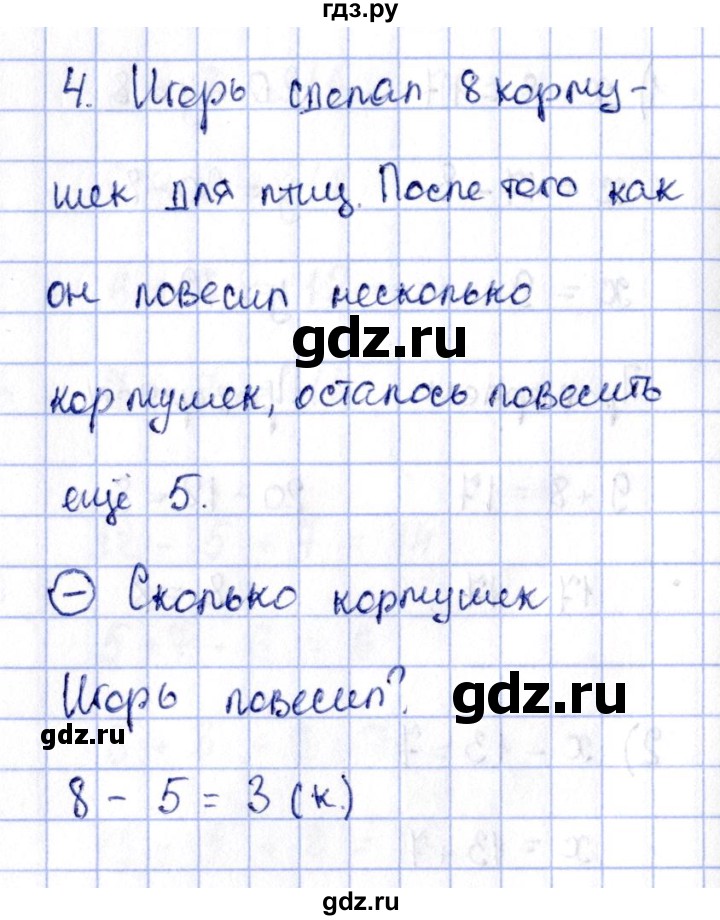 гдз.ру
4. Игорь сделал 8 корму-
шек для птиц. После того как
он повесил несколько
gdz.ru
кормушек, осталось повесить
ещё 5.
⊖ Сколько кормушек
Игорь повесил?
gdz.ru
gdz.ru
8 - 5 = 3 (к.)
gdz.ru